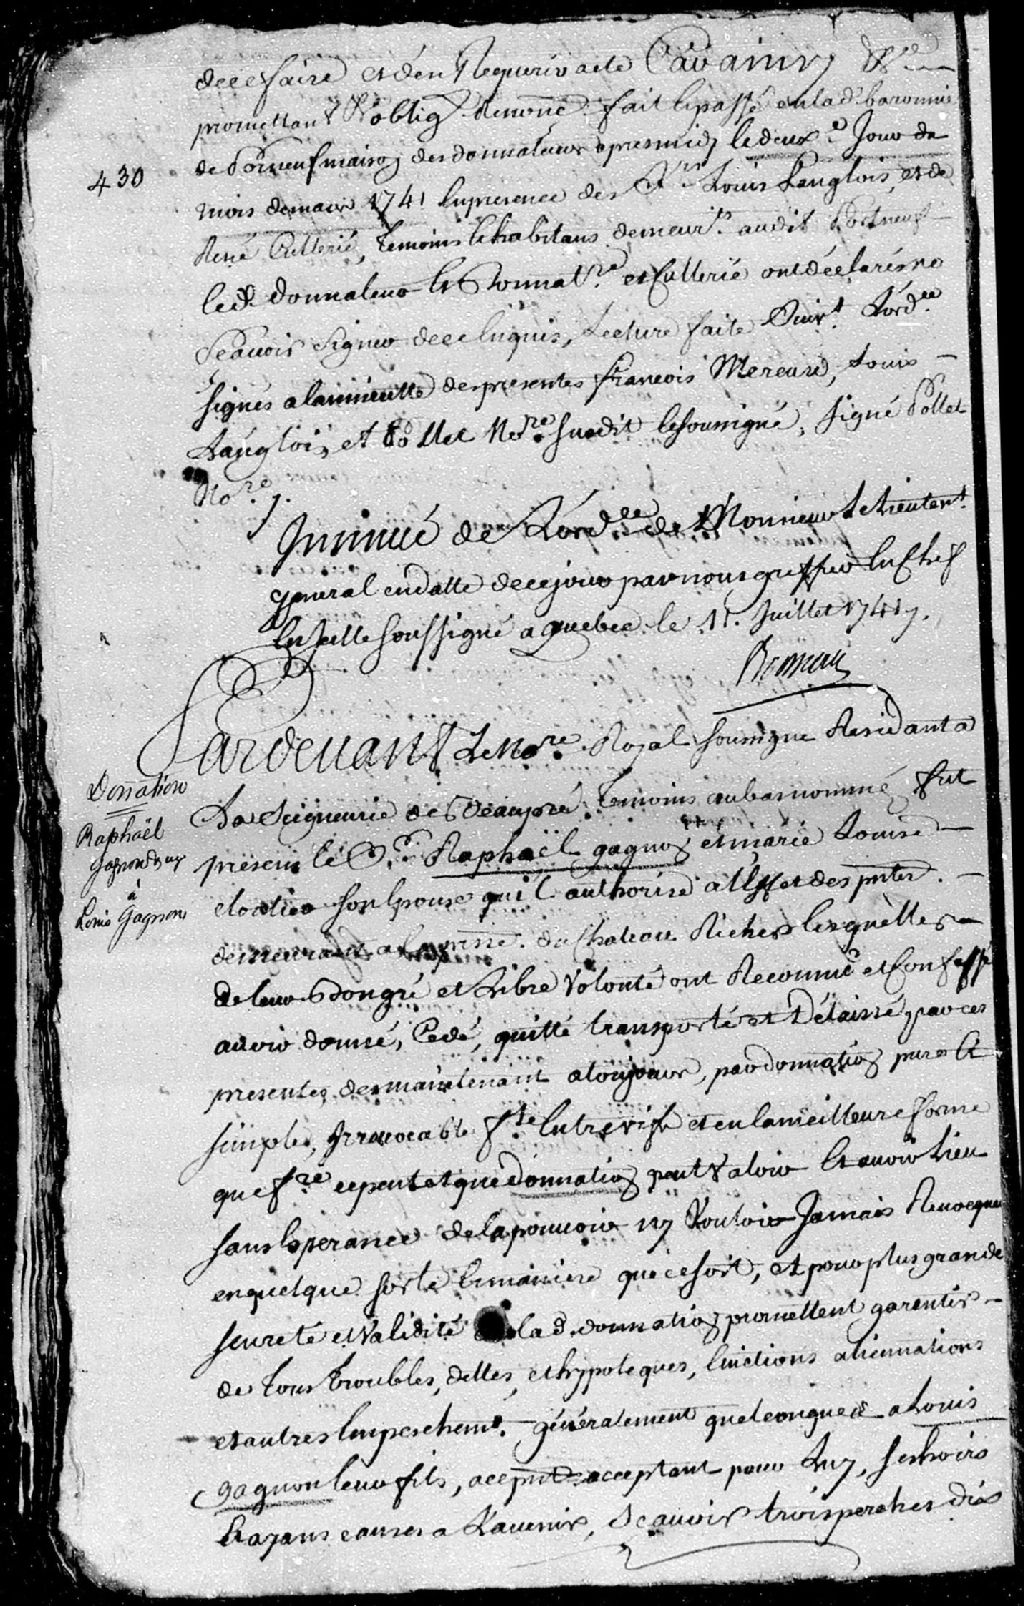 de ce faire et d'en Requerir acte Car ainsy &c.
promettant & oblig. Renonc. fait et passé en la d. baronnie
de Portneuf maison des donnateurs apres midy le deux.e Jour de
430
mois de mars 1741 En presence des Srs. Louis Langlois, et de
René Cutterié, Temoins & habitans demeurts. audit Portneuf
led. donnateur Et Donnatre. et Cutterié ont déclaré ne
Scavoir Signer de ce Enquis, Lecture faite Suivt. Lordce
signés a la minutte des presentes francois Mercure, Louis
Langlois et Pollet Nore. susdit & soussigné, signé Pollet
Nore.
Insinué de Lordce de Monsieur Le Lieutent.
general en datte de ce jour par nous greffier En Chef
En Icelle soussigné a quebec le 11. Juillet 1741.
Pardevant Le Nore. Royal soussigné Residant a
Donation
Raphaël
Gagnon & ux
à
Louis Gagnon
La Seigneurie de Beaupré Temoins en bas nommés, fut
present le Sr. Raphaël gagnon et marie Louise
cloutier son Epouse qu'il authorise a l'Effet des pntes.
demeurant a la parsse. du Chateau Richer Lesquelles
de leur Bongré et Libre Volonté ont Reconnue et Confessé
avoir donné, Cedé, quitté transporté et Délaissé par ces
presentes, des maintenant a toujours, par donnation pure &
simples, Irrevocable fte. Entre vifs et en la meilleure forme
que fre. ce peut et que donnation peut Valoir Et avoir Lieu
sans Esperance de la pouvoir ny Vouloir Jamais Revocquer
en quelque sorte & maniere que ce soit, et pour plus grande
seureté et Validité de la d. donnation promettent garentir
de Tous Troubles, dettes, et hypoteques, Evictions alienations
et autres Empeschemt. generalement quelconques a Louis
gagnon leur fils, a ce pnt & acceptant pour Luy, ses hoirs
Et ayans causes a L'avenir, Scavoir trois perches dix